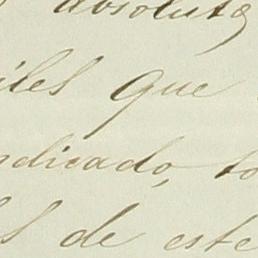 absoluta
iles que
ndicado, to
s de este